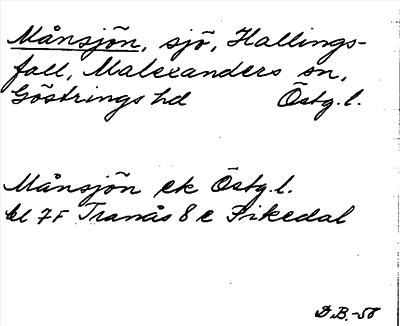 Månsjön, sjö, Hallings-
fall, Malexanders sn,
Göstrings hd Östg.l.
Månsjön ek Östg.l.
bl 7F Tranås 8 e Fikedal
D.B.-58